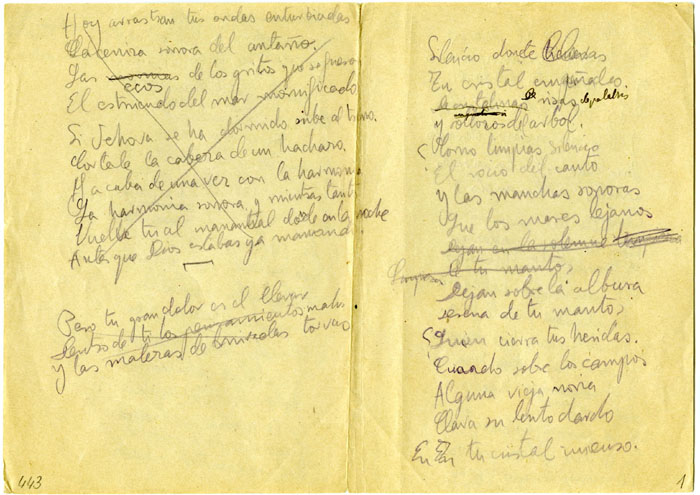 Hoy arrastran tus ondas enturbiadas
La ceniza sonora del antaño.
Las de los gritos que se fueron
ecos
El estruendo del mar momificado
Si Jehová se ha dormido sube al trono
cortale la cabeza de un hachazo
Y acaba de una vez con la harmonia
La harmonia sonora y mientras tanto
Vuelve tu al manantial donde en la noche
Antes que Dios estabas ya manando.
Pero tu gran dolor es el llevar
Dentro de ti los pensamientos malos
y las de miradas
Silencio donde llevas
Tu cristal empañado
de risas de palabras
y sollozos del arbol.
Como limpias Silencio
El rocio del canto
Y las manchas sonoras
Que los mares lejanos
dejan en la solemne
a tu manto,
Dejan sobre la albura
serena de tu manto,
Quien cierra tus heridas.
Cuando sobre los campos
Alguna vieja noria
Clava su lento dardo
En En tu cristal inmenso.
443
1